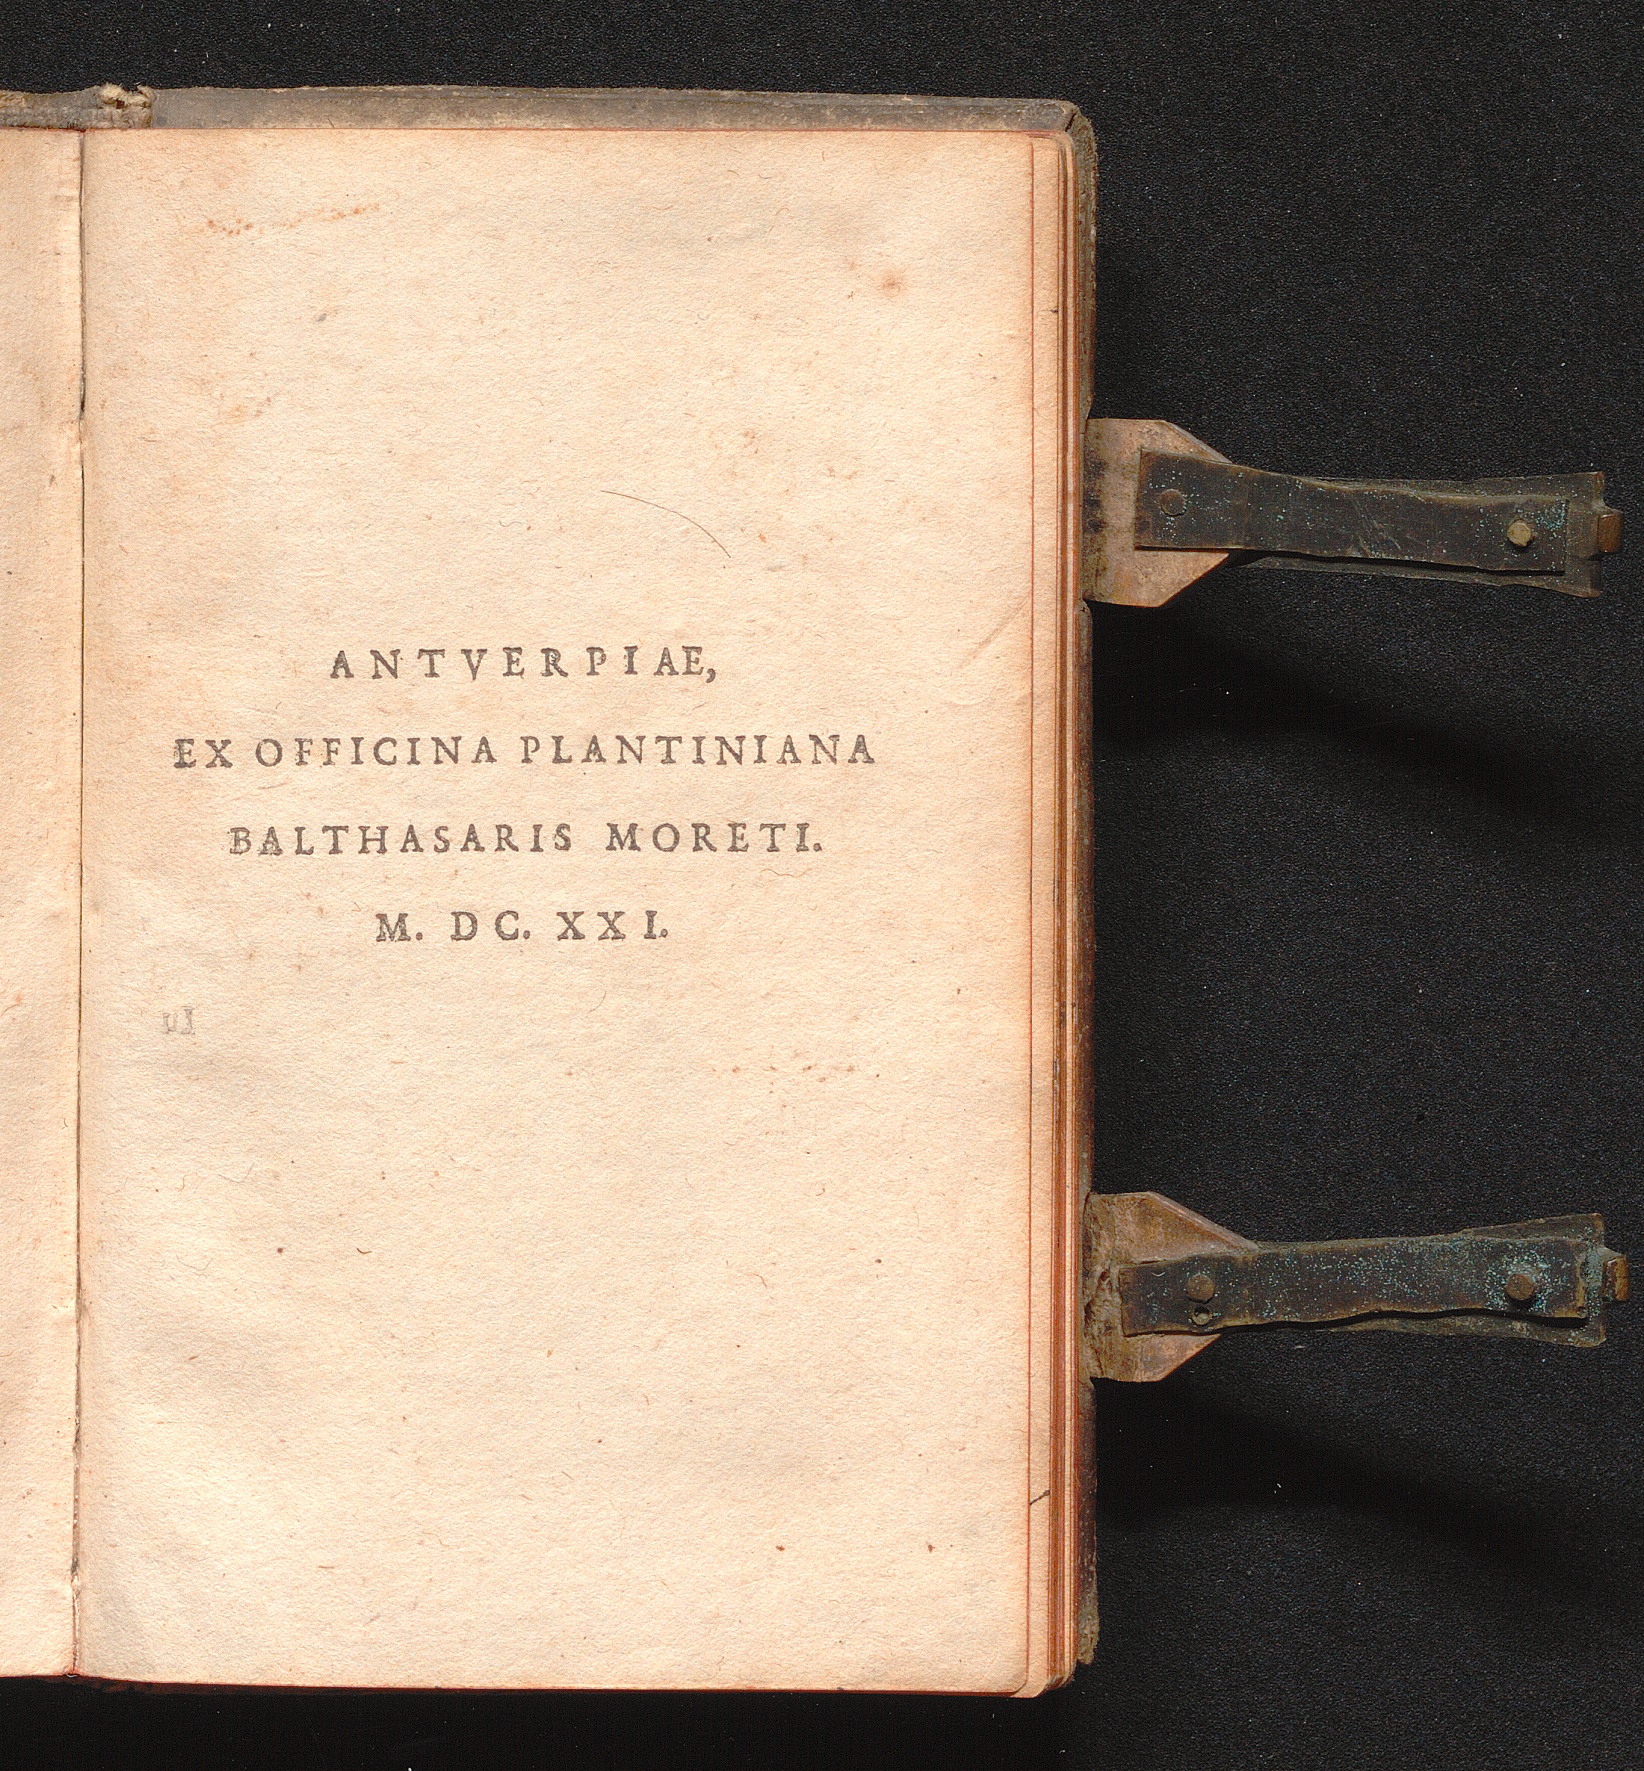 ANTVERPIAE,
EX OFFICINA PLANTINIANA
BALTHASARIS MORETI.
M. DC. XXI.